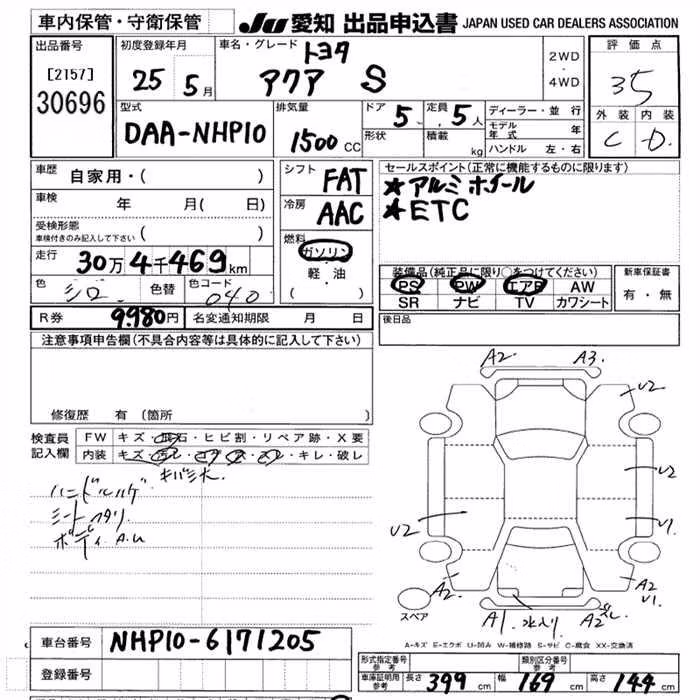 車内保管・守衛保管
JU 愛知 出品申込書 JAPAN USED CAR DEALERS ASSOCIATION
出品番号
[2157]
30696
初度登録年月
25 5月
車名・グレード
トヨタ
アクア S
2WD
・
4WD
評価点
3.5
外装 内装
C D
型式
DAA-NHP10
排気量
1500 CC
ドア 5
定員 5人
形状
積載 kg
ディーラー・並行
モデル年式 年
ハンドル 左・右
車歴
自家用・( )
車検 年 月( 日)
受検形態
車検付きのみ記入して下さい ( )
走行
30万4千469km
色 シロ 色替 色コード 040
R券 9.980円 名変通知期限 月 日
シフト
FAT
冷房
AAC
燃料
ガソリン
・
軽・油
( )
セールスポイント(正常に機能するものに限ります)
★アルミホイール
★ETC
装備品(純正品に限り○をつけてください)
PS PW エアB AW
SR ナビ TV カワシート
新車保証書
有・無
後日品
注意事項申告欄(不具合内容等は具体的に記入して下さい)
修復歴 有(箇所 )
検査員
記入欄
FW キズ・飛石・ヒビ割・リペア跡・X要
内装 キズ・汚レ・コゲ・穴・スレ・キレ・破レ
ハンドルハゲ
シートヘタリ
A2 A3
U2
U2
U2 U1
A2 A2
U1
A1 水入り A2
スペア
A-キズ E-エクボ U-凹み W-補修跡 S-サビ C-腐食 XX-交換済
車台番号 NHP10-6171205
登録番号
形式指定番号
参考
類別区分番号
参考
車庫証明用
参考
長さ 399 cm 幅 169 cm 高さ 144 cm